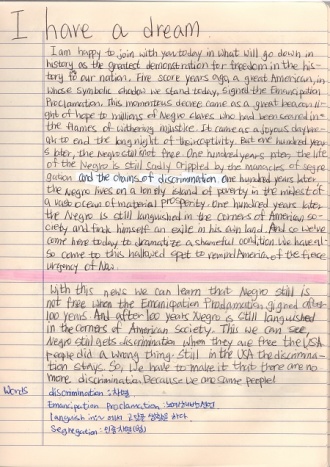 I have a dream
I am happy to join with you today in what will go down in
history as the greatest demonstration for freedom in the his-
tory of our nation. Five score years ago, a great American, in
whose symbolic shadow we stand today, signed the Emancipation
Proclamation. This momentous decree came as a great beacon li-
ght of hope to millions of Negro slaves who had been seared in
the flames of withering injustice. It came as a joyous daybre-
ak to end the long night of their captivity. But one hundred year
s later, the Negro still not free. One hundred years later, the life
of the Negro is still sadly crippled by the manacles of segre
gation and the chains of discrimination. One hundred years later,
the Negro lives on a lonely island of poverty in the midst of
a vast ocean of material prosperity. One hundred years later,
the Negro is still languished in the corners of American so-
ciety and finds himself an exile in his own land. And so we've
come here today to dramatize a shameful condition. We have al-
so come to this hallowed spot to remind America of the fierce
urgency of Now.
With this news we can learn that Negro still is
not free when the Emancipation Proclamation signed after
100 years. And after 100 years Negro is still languished
in the corners of American Society. This we can see,
Negro still gets discrimination when they are free the USA
people did a wrong thing. Still in the USA the discrimina-
tion stays. So, we have to make it that there are no
more discrimination. Because we are same people!
Words discrimination : 차별
Emancipation Proclamation : 노예해방선언
languish in : 에서 고달픈 생활을 하다.
Segregation : 인종차별(의)